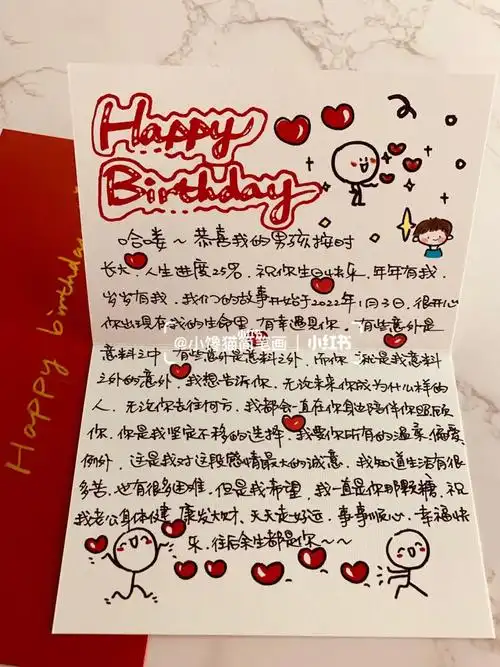 Happy
Birthday
哈喽~恭喜我的男孩按时
长大，人生进度25%，祝你生日快乐，年年有我，
岁岁有我，我们的故事开始于2022年1月3日，很开心
你出现在我的生命里，有幸遇见你。有些意外是
@小馋猫简笔画 小红书
意料之中，有些意外是意料之外，而你就是我意料
之外的意外，我想告诉你，无论未来你成为什么样的
人，无论你去往何方，我都会一直在你身边陪伴你照顾
你，你是我坚定不移的选择，我要你所有的温柔、偏爱、
例外，这是我对这段感情最大的诚意，我知道生活有很
多苦，也有很多困难，但是我希望，我一直是你那颗糖，祝
我老公身体健康，发大财、天天走好运，事事顺心，幸福快
乐，往后余生都是你~~
Happy birthday